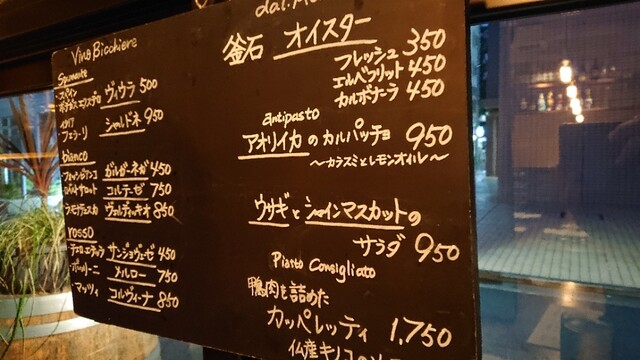 Vino Bicchiere
Spumante
・スペイン
ヴィウラ 500
イタリア
フェラーリ
シャルドネ 950
bianco
ガルガーネガ 450
コルテーゼ 750
・ラ・モナチェスカ
ヴェルディッキオ 850
rosso
サンジョヴェーゼ 450
メルロー 750
・マッツィ
コルヴィーナ 850
釜石 オイスター
フレッシュ 350
エルベフリット 450
カルボナーラ 450
antipasto
アオリイカのカルパッチョ 950
〜カラスミとレモンオイル〜
ウサギとシャインマスカットの
サラダ 950
Piatto Consigliato
鴨肉を詰めた
カッペレッティ 1,750
仏産キノコの